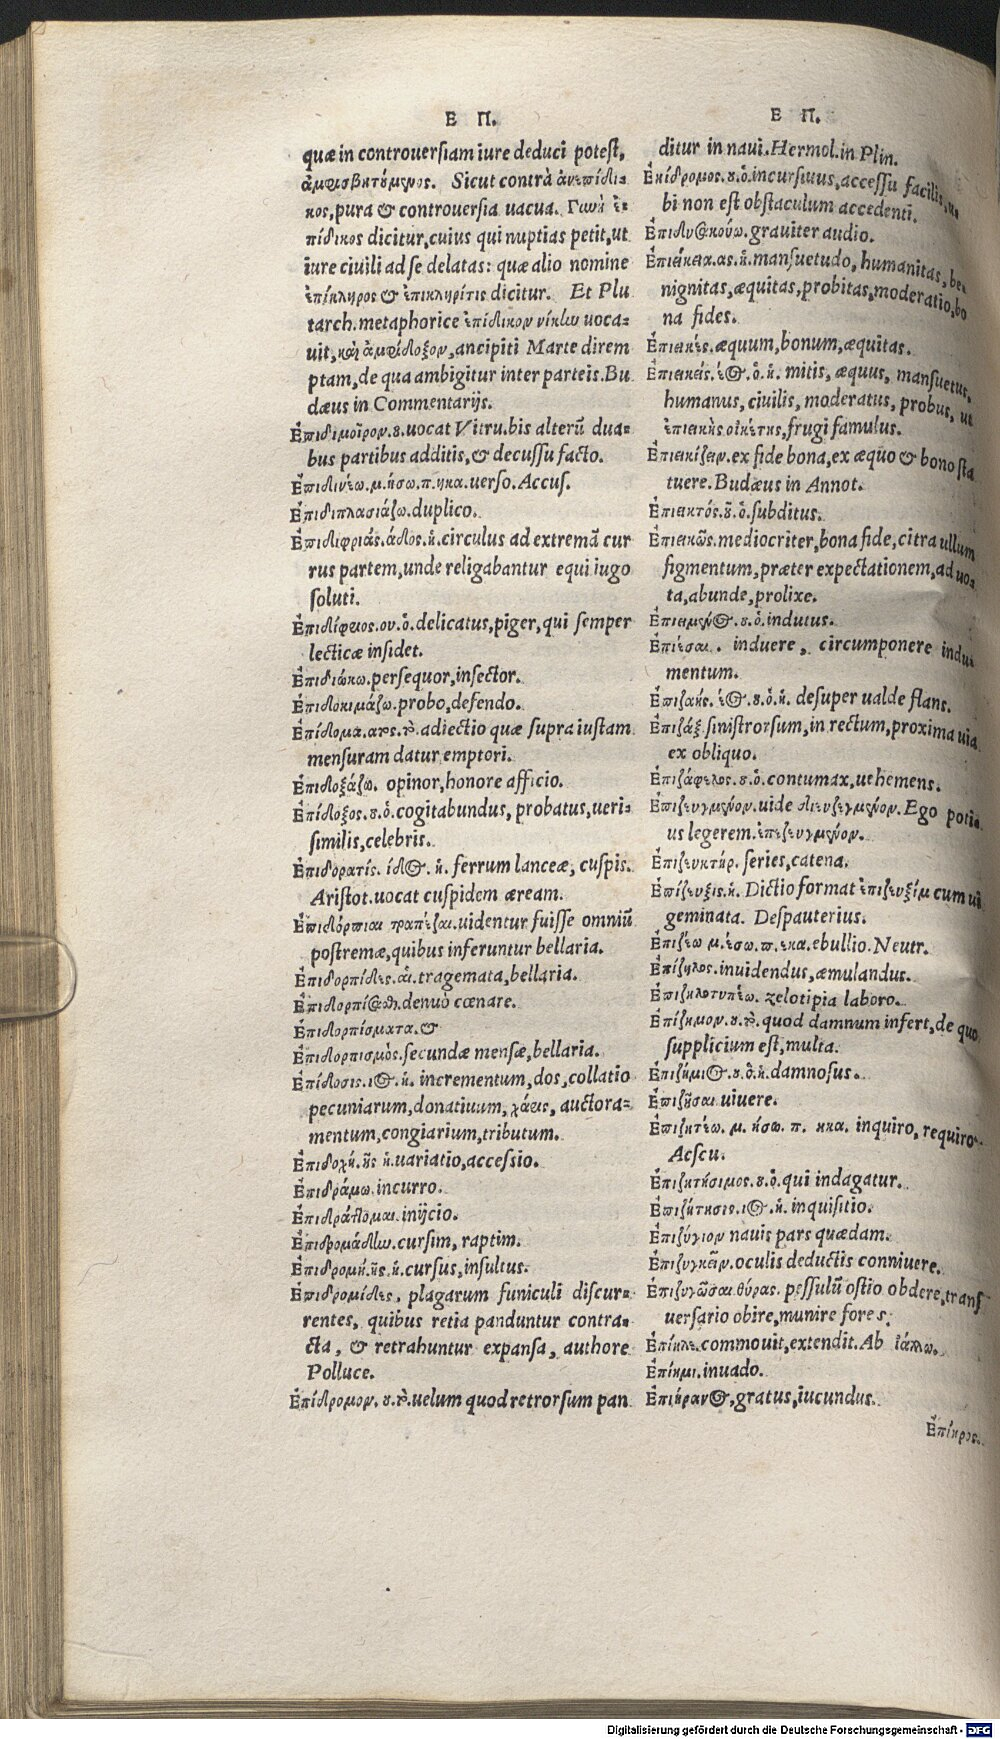 Ε Π.
quæ in controuersiam iure deduci potest,
ἀμφισβητούμενος. Sicut contrà ἀνεπίδι-
κος, pura & controuersia uacua. Γυνὴ ἐ-
πίδικος dicitur, cuius qui nuptias petit, ut
iure ciuili ad se delatas: quæ alio nomine
ἐπίκληρος & ἐπικληρίτις dicitur. Et Plu
tarch. metaphorice ἐπίδικον νίκην uoca-
uit, καὶ ἀμφίδοξον, ancipiti Marte direm
ptam, de qua ambigitur inter parteis. Bu
dæus in Commentarijs.
Ἐπιδιμοῖρον. ου. uocat Vitru. bis alterũ dua-
bus partibus additis, & decussu facto.
Ἐπιδινέω. μ. ήσω. π. ηκα. uerso. Accus.
Ἐπιδιπλασιάζω. duplico.
Ἐπιδιφριάς. άδος. ἡ. circulus ad extremã cur
rus partem, unde religabantur equi iugo
soluti.
Ἐπιδίφριος. ου. ὁ. delicatus, piger, qui semper
lecticæ insidet.
Ἐπιδιώκω. persequor, insector.
Ἐπιδοκιμάζω. probo, defendo.
Ἐπίδομα. ατος. τὸ. adiectio quæ supra iustam
mensuram datur emptori.
Ἐπιδοξάζω. opinor, honore afficio.
Ἐπίδοξος. ου. ὁ. cogitabundus, probatus, ueri-
similis, celebris.
Ἐπιδορατίς. ίδος. ἡ. ferrum lanceæ, cuspis.
Aristot. uocat cuspidem æream.
Ἐπιδόρπιαι τραπέζαι. uidentur fuisse omniũ
postremæ, quibus inferuntur bellaria.
Ἐπιδορπίδες. αἱ. tragemata, bellaria.
Ἐπιδορπίσασθαι. denuò cœnare.
Ἐπιδορπίσματα. &
Ἐπιδορπισμὸς. secundæ mensæ, bellaria.
Ἐπίδοσις. ιος. ἡ. incrementum, dos, collatio
pecuniarum, donatiuum, χάρις, auctora-
mentum, congiarium, tributum.
Ἐπιδοχή. ῆς ἡ. uariatio, accessio.
Ἐπιδράμω. incurro.
Ἐπιδράττομαι. inijcio.
Ἐπιδρομάδην. cursim, raptim.
Ἐπιδρομή. ῆς. ἡ. cursus, insultus.
Ἐπιδρομίδες, plagarum funiculi discur-
rentes, quibus retia panduntur contra-
cta, & retrahuntur expansa, authore
Polluce.
Ἐπίδρομον. ου. τὸ. uelum quod retrorsum pan
Ε Π.
ditur in naui. Hermol. in Plin.
Ἐπίδρομος. ου. ὁ. incursiuus, accessu facilis, u-
bi non est obstaculum accedenti.
Ἐπιδυσκούω. grauiter audio.
Ἐπιείκεια. ας. ἡ. mansuetudo, humanitas, be-
nignitas, æquitas, probitas, moderatio, bo
na fides.
Ἐπιεικές. æquum, bonum, æquitas.
Ἐπιεικής. έος. ὁ. ἡ. mitis, æquus, mansuetus,
humanus, ciuilis, moderatus, probus, ut
ἐπιεικὴς οἰκέτης, frugi famulus.
Ἐπιεικίζειν. ex fide bona, ex æquo & bono sta
tuere. Budæus in Annot.
Ἐπιεικτός. οῦ. ὁ. subditus.
Ἐπιεικῶς. mediocriter, bona fide, citra ullum
figmentum, præter expectationem, ad uo-
ta, abunde, prolixe.
Ἐπιειμένος. ου. ὁ. indutus.
Ἐπιέσαι. induere, circumponere indu-
mentum.
Ἐπιζαής. έος. ου. ὁ. ἡ. desuper ualde flans.
Ἐπιζάξ. sinistrorsum, in rectum, proxima uia
ex obliquo.
Ἐπιζάφελος. ου. ὁ. contumax, uehemens.
Ἐπιζευγμένον. uide διεζευγμένον. Ego poti-
us legerem. ἐπεζευγμένον.
Ἐπιζευκτήρ. series, catena.
Ἐπίζευξις. ἡ. Dictio format ἐπιζευξίμ cum ui
geminata. Despauterius.
Ἐπιζέω μ. έσω. π. εκα. ebullio. Neutr.
Ἐπίζηλος. inuidendus, æmulandus.
Ἐπιζηλοτυπέω. zelotipia laboro.
Ἐπίζημον. ου. τὸ. quod damnum infert, de quo
supplicium est, multa.
Ἐπιζήμιος. ου. ὁ. ἡ. damnosus.
Ἐπιζῆσαι uiuere.
Ἐπιζητέω. μ. ήσω. π. ηκα. inquiro, requiro-
Acscu.
Ἐπιζητήσιμος. ου. ὁ. qui indagatur.
Ἐπιζήτησις. ιος. ἡ. inquisitio.
Ἐπιζύγιον nauis pars quædam.
Ἐπιζυγκεῖν. oculis deductis conniuere.
Ἐπιζυγῶσαι θύρας. pessulũ ostio obdere, trans
uersario obire, munire fores.
Ἐπίηλε. commouit, extendit. Ab ἰάλλω.
Ἐπίημι. inuado.
Ἐπιήρανος, gratus, iucundus.
Ἐπίηρος.
Digitalisierung gefördert durch die Deutsche Forschungsgemeinschaft - DFG